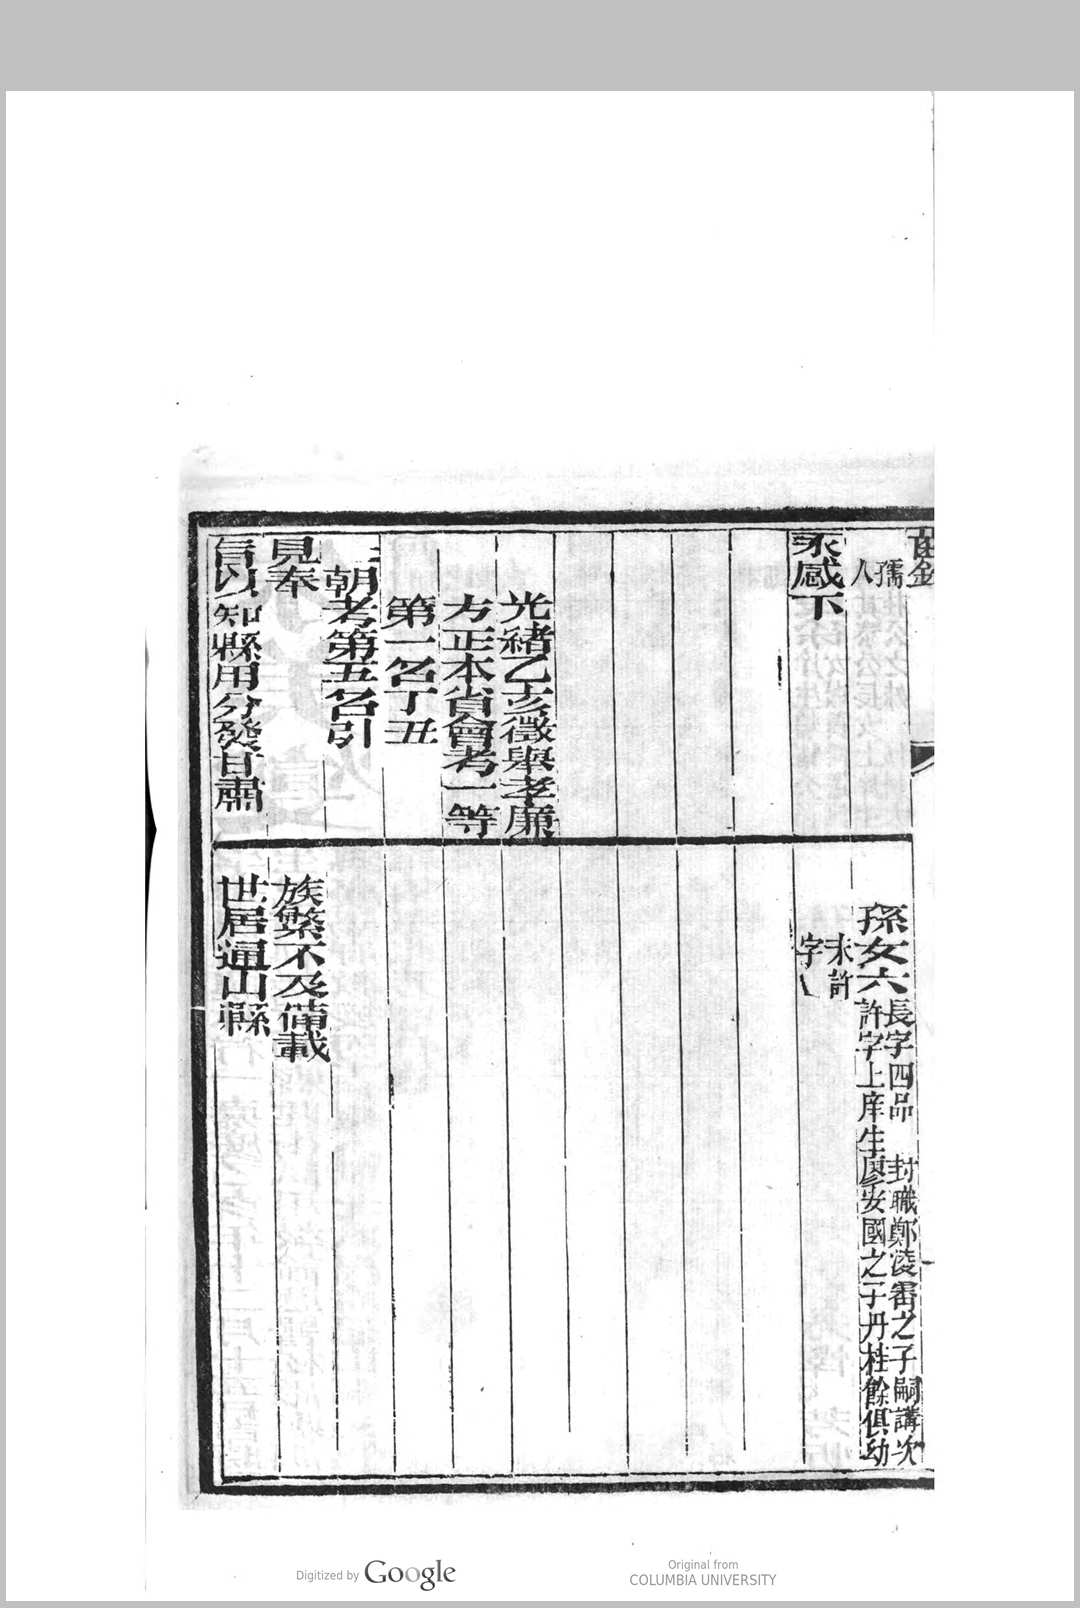 孺
人
永感下
光緒乙亥徵舉孝廉
方正本省會考一等
第一名丁丑
朝考第五名引
見奉
旨以知縣用分發甘肅
孫女六長字四品 封職鄭凌霄之子嗣講次
許字上庠生廖安國之子丹桂餘俱幼
未許
字
族繁不及備載
世居通山縣
Digitized by Google
Original from
COLUMBIA UNIVERSITY